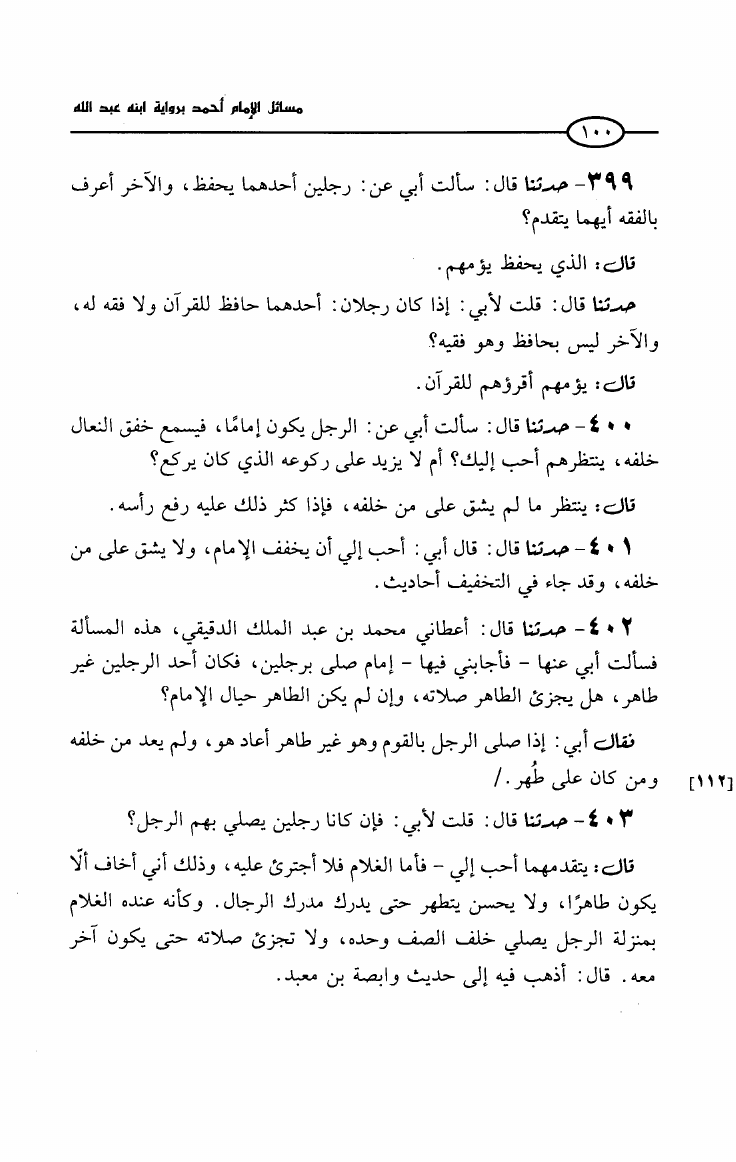 مسائل الإمام أحمد برواية ابنه عبد الله
١٠٠
٣٩٩- حدثنا قال: سألت أبي عن: رجلين أحدهما يحفظ، والآخر أعرف
بالفقه أيهما يتقدم؟
قال: الذي يحفظ يؤمهم.
حدثنا قال: قلت لأبي: إذا كان رجلان: أحدهما حافظ للقرآن ولا فقه له،
والآخر ليس بحافظ وهو فقيه؟
قال: يؤمهم أقرؤهم للقرآن.
٤٠٠- حدثنا قال: سألت أبي عن: الرجل يكون إمامًا، فيسمع خفق النعال
خلفه، ينتظرهم أحب إليك؟ أم لا يزيد على ركوعه الذي كان يركع؟
قال: ينتظر ما لم يشق على من خلفه، فإذا كثر ذلك عليه رفع رأسه.
٤٠١- حدثنا قال: قال أبي: أحب إلي أن يخفف الإمام، ولا يشق على من
خلفه، وقد جاء في التخفيف أحاديث.
٤٠٢- حدثنا قال: أعطاني محمد بن عبد الملك الدقيقي، هذه المسألة
فسألت أبي عنها - فأجابني فيها - إمام صلى برجلين، فكان أحد الرجلين غير
طاهر، هل يجزئ الطاهر صلاته، وإن لم يكن الطاهر حيال الإمام؟
فقال أبي: إذا صلى الرجل بالقوم وهو غير طاهر أعاد هو، ولم يعد من خلفه
ومن كان على طُهر./ [١١٢]
٤٠٣- حدثنا قال: قلت لأبي: فإن كانا رجلين يصلي بهم الرجل؟
قال: يتقدمهما أحب إلي - فأما الغلام فلا أجترئ عليه، وذلك أني أخاف ألّا
يكون طاهرًا، ولا يحسن يتطهر حتى يدرك مدرك الرجال. وكأنه عنده الغلام
بمنزلة الرجل يصلي خلف الصف وحده، ولا تجزئ صلاته حتى يكون آخر
معه. قال: أذهب فيه إلى حديث وابصة بن معبد.